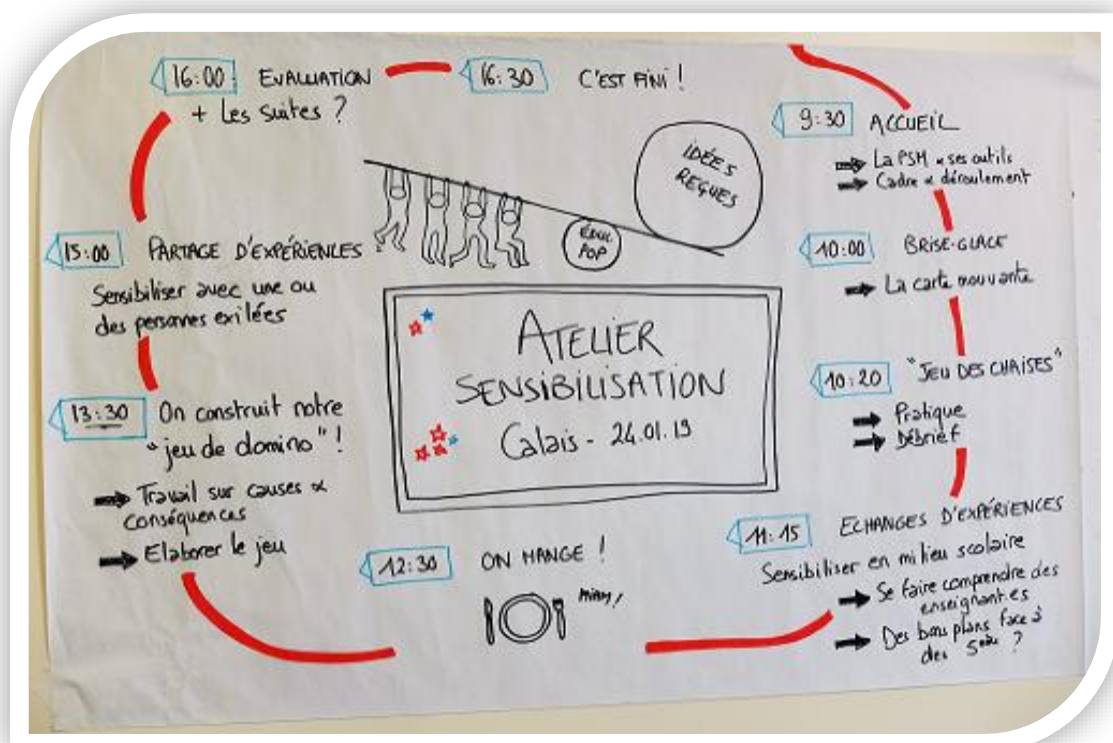 ATELIER
SENSIBILISATION
Calais - 24.01.19
IDÉES
REÇUES
ÉDUC
POP
9:30 ACCUEIL
➡ La PSM & ses outils
➡ Cadre & déroulement
10:00 BRISE-GLACE
➡ La carte mouvante
10:20 "JEU DES CHAISES"
➡ Pratique
➡ Débrief
11:15 ECHANGES D'EXPÉRIENCES
Sensibiliser en milieu scolaire
➡ Se faire comprendre des
enseignant·es
➡ Des bons plans face à
des 5" ?
12:30 ON MANGE !
MIAM !
13:30 On construit notre
"jeu de domino" !
➡ Travail sur causes &
conséquences
➡ Elaborer le jeu
15:00 PARTAGE D'EXPÉRIENCES
Sensibiliser avec une ou
des personnes exilées
16:00 EVALUATION
+ Les suites ?
16:30 C'EST FINI !